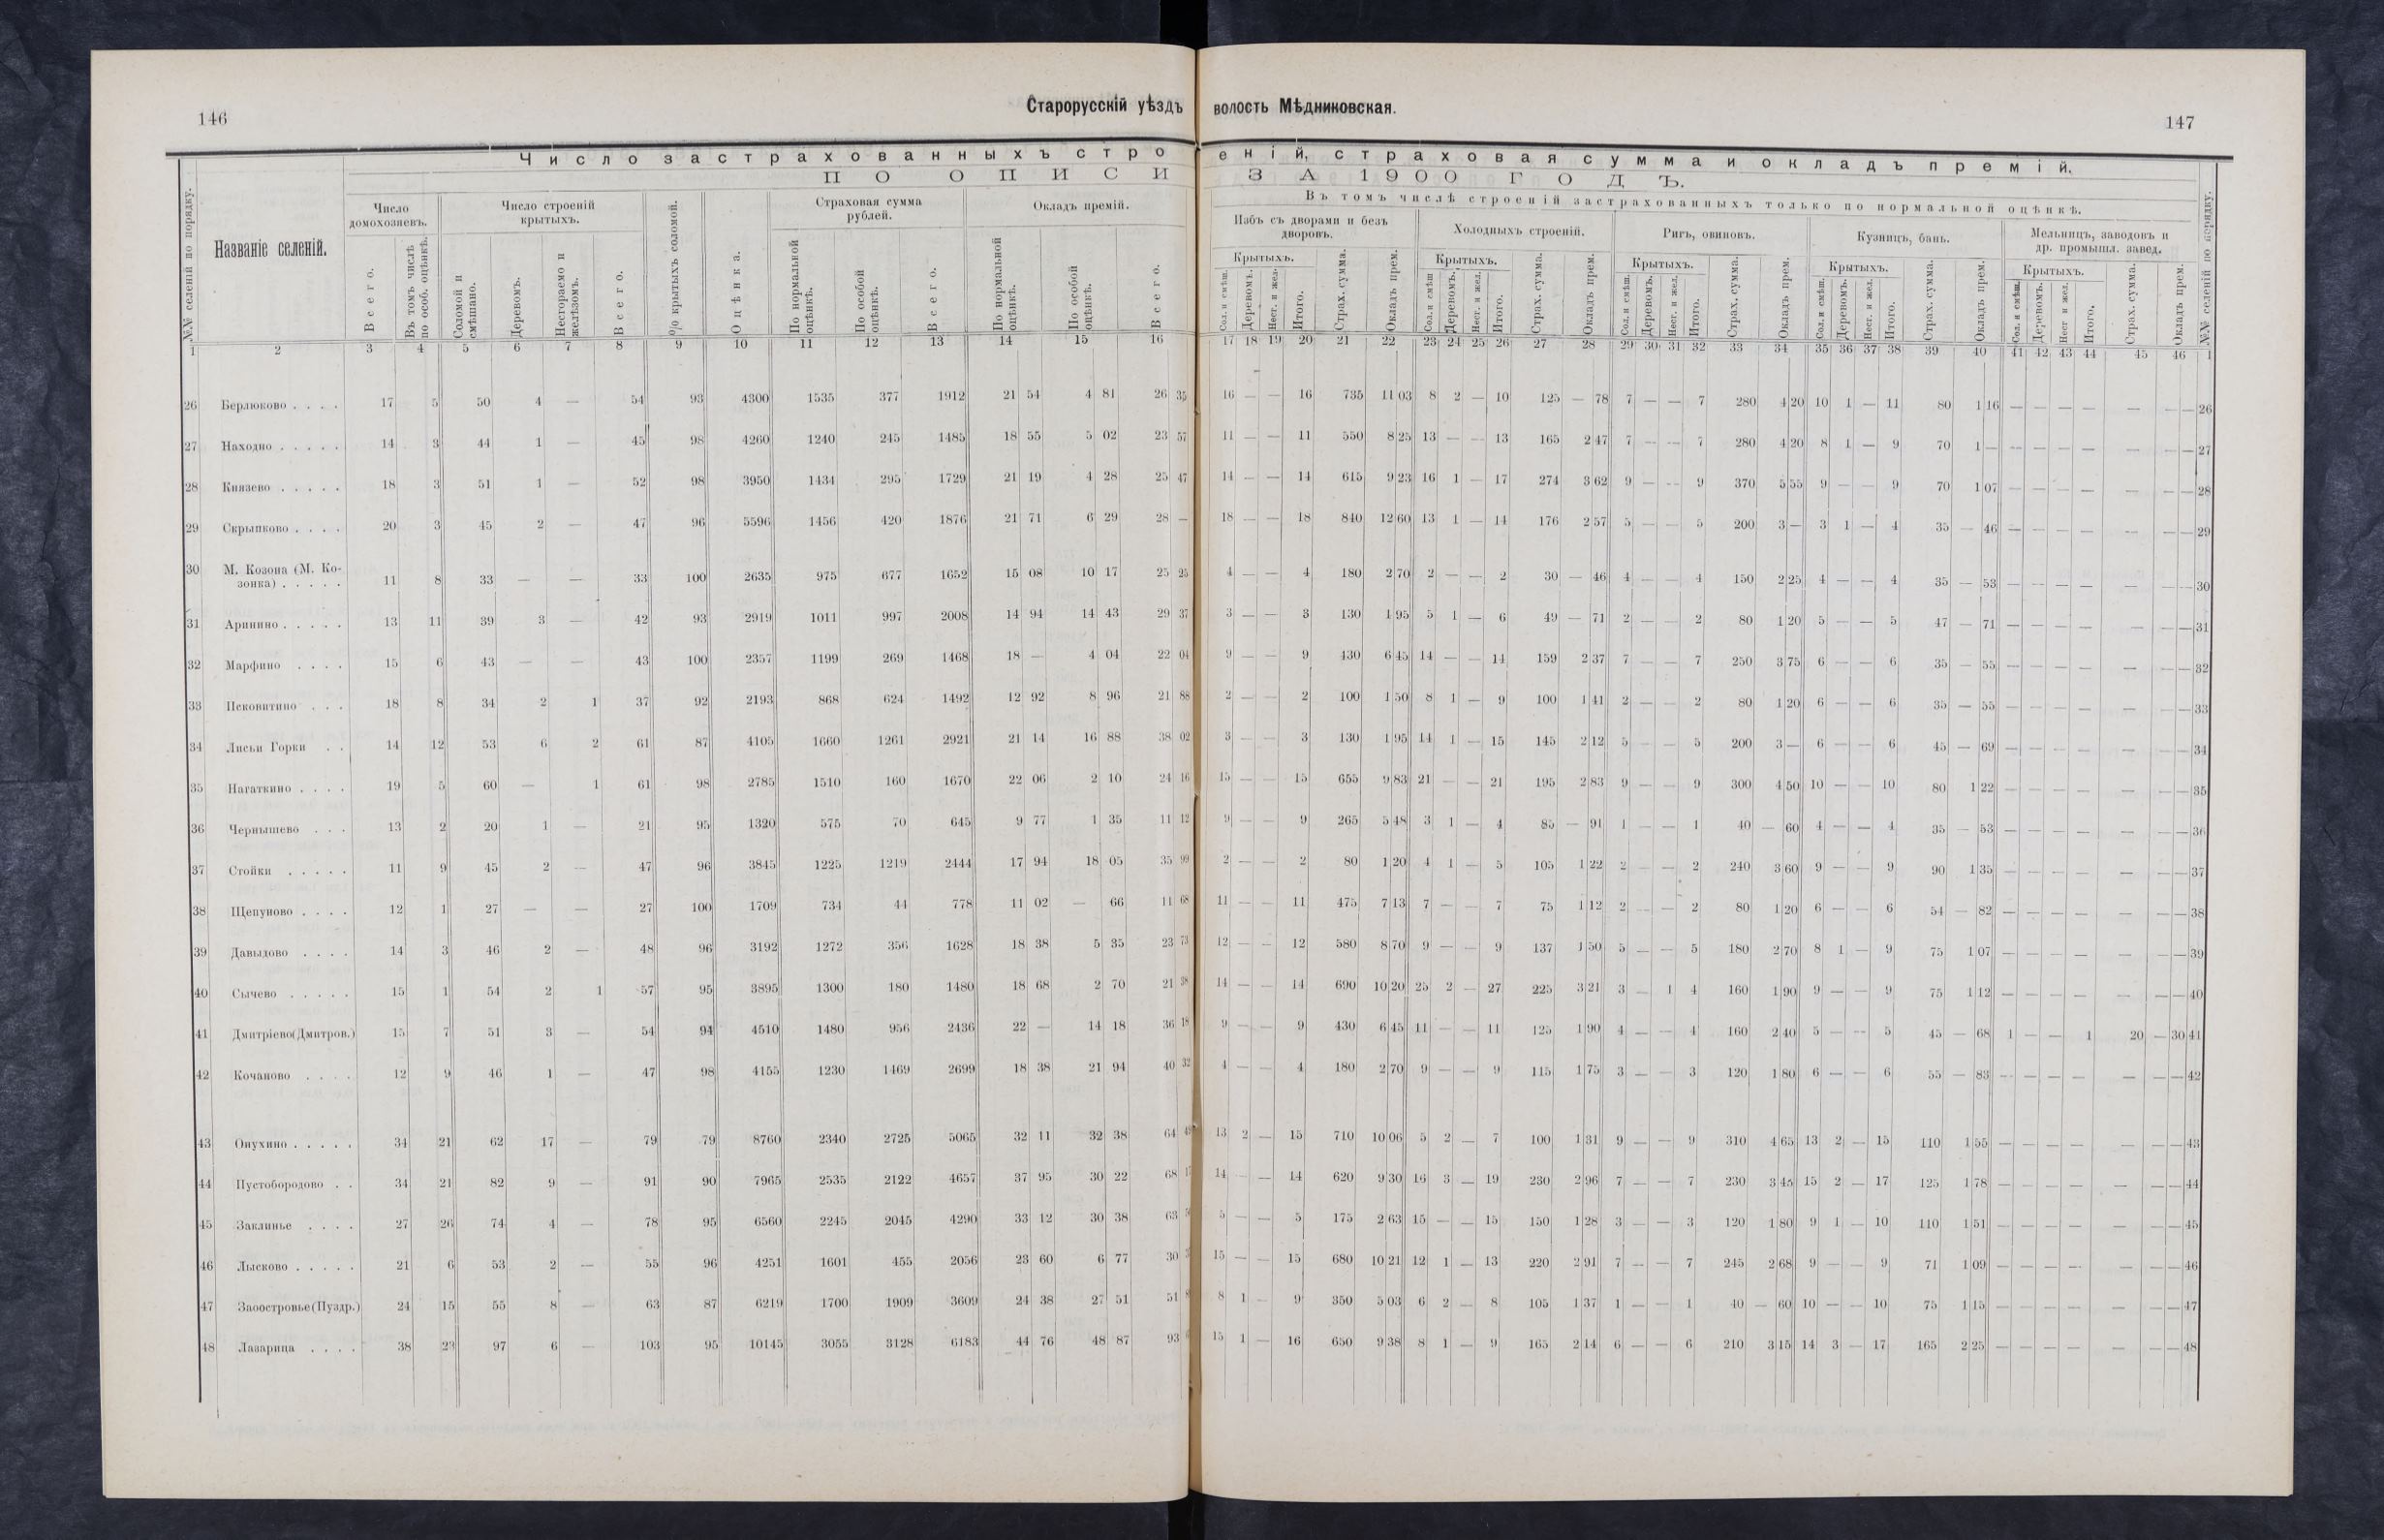 146
Старорусскій уѣздъ волость Мѣдниковская.
147
Число застрахованныхъ строеній, страховая сумма и окладъ премій.
ПО ОПИСИ ЗА 1900 ГОДЪ.
Въ томъ числѣ строеній застрахованныхъ только по нормальной оцѣнкѣ.
№№ селеній по порядку.
Названіе селеній.
Число домохозяевъ.
Всего.
Въ томъ числѣ по особ. оцѣнкѣ.
Число строеній крытыхъ.
Соломой и смѣшано.
Деревомъ.
Несгораемо и желѣзомъ.
Всего.
% крытыхъ соломой.
Оцѣнка.
Страховая сумма рублей.
По нормальной оцѣнкѣ.
По особой оцѣнкѣ.
Всего.
Окладъ премій.
По нормальной оцѣнкѣ.
По особой оцѣнкѣ.
Всего.
Избъ съ дворами и безъ дворовъ.
Крытыхъ.
Сол. и смѣш.
Деревомъ.
Несг. и жел.
Итого.
Страх. сумма.
Окладъ прем.
Холодныхъ строеній.
Крытыхъ.
Сол. и смѣш
Деревомъ.
Несг. и жел.
Итого.
Страх. сумма.
Окладъ прем.
Ригъ, овиновъ.
Крытыхъ.
Сол. и смѣш.
Деревомъ.
Несг. и жел.
Итого.
Страх. сумма.
Окладъ прем.
Кузницъ, бань.
Крытыхъ.
Сол. и смѣш.
Деревомъ.
Нес. и жел.
Итого.
Страх. сумма.
Окладъ прем.
Мельницъ, заводовъ и др. промышл. завед.
Крытыхъ.
Сол. и смѣш.
Деревомъ.
Нес и жел.
Итого.
Страх. сумма.
Окладъ прем.
№№ селеній по порядку.
1 2 3 4 5 6 7 8 9 10 11 12 13 14 15 16 17 18 19 20 21 22 23 24 25 26 27 28 29 30 31 32 33 34 35 36 37 38 39 40 41 42 43 44 45 46 1
26 Берлюково . . . . 17 5 50 4 — 54 93 4300 1535 377 1912 21 54 4 81 26 35 16 — — 16 735 11 03 8 2 — 10 125 — 78 7 — — 7 280 4 20 10 1 — 11 80 1 16 — — — — — — — 26
27 Находно . . . . . 14 3 44 1 — 45 98 4260 1240 245 1485 18 55 5 02 23 57 11 — — 11 550 8 25 13 — — 13 165 2 47 7 — — 7 280 4 20 8 1 — 9 70 1 — — — — — — — — 27
28 Князево . . . . . 18 3 51 1 — 52 98 3950 1434 295 1729 21 19 4 28 25 47 14 — — 14 615 9 23 16 1 — 17 274 3 62 9 — — 9 370 5 55 9 — — 9 70 1 07 — — — — — — — 28
29 Скрыпково . . . . 20 3 45 2 — 47 96 5596 1456 420 1876 21 71 6 29 28 — 18 — — 18 840 12 60 13 1 — 14 176 2 57 5 — — 5 200 3 — 3 1 — 4 35 — 46 — — — — — — — 29
30 М. Козона (М. Ко-
зонка) . . . . . 11 8 33 — — 33 100 2635 975 677 1652 15 08 10 17 25 25 4 — — 4 180 2 70 2 — — 2 30 — 46 4 — — 4 150 2 25 4 — — 4 35 — 53 — — — — — — — 30
31 Аринино . . . . . 13 11 39 3 — 42 93 2919 1011 997 2008 14 94 14 43 29 37 3 — — 3 130 1 95 5 1 — 6 49 — 71 2 — — 2 80 1 20 5 — — 5 47 — 71 — — — — — — — 31
32 Марфино . . . . 15 6 43 — — 43 100 2357 1199 269 1468 18 — 4 04 22 04 9 — — 9 430 6 45 14 — — 14 159 2 37 7 — — 7 250 3 75 6 — — 6 35 — 55 — — — — — — — 32
33 Псковитино . . . 18 8 34 2 1 37 92 2193 868 624 1492 12 92 8 96 21 88 2 — — 2 100 1 50 8 1 — 9 100 1 41 2 — — 2 80 1 20 6 — — 6 35 — 55 — — — — — — — 33
34 Лисьи Горки . . 14 12 53 6 2 61 87 4105 1660 1261 2921 21 14 16 88 38 02 3 — — 3 130 1 95 14 1 — 15 145 2 12 5 — — 5 200 3 — 6 — — 6 45 — 69 — — — — — — — 34
35 Нагаткино . . . . 19 5 60 — 1 61 98 2785 1510 160 1670 22 06 2 10 24 16 15 — — 15 655 9 83 21 — — 21 195 2 83 9 — — 9 300 4 50 10 — — 10 80 1 22 — — — — — — — 35
36 Чернышево . . . 13 2 20 1 — 21 95 1320 575 70 645 9 77 1 35 11 12 9 — — 9 265 5 48 3 1 — 4 85 — 91 1 — — 1 40 — 60 4 — — 4 35 — 53 — — — — — — — 36
37 Стойки . . . . . 11 9 45 2 — 47 96 3845 1225 1219 2444 17 94 18 05 35 99 2 — — 2 80 1 20 4 1 — 5 105 1 22 2 — — 2 240 3 60 9 — — 9 90 1 35 — — — — — — — 37
38 Щепуново . . . . 12 1 27 — — 27 100 1709 734 44 778 11 02 — 66 11 68 11 — — 11 475 7 13 7 — — 7 75 1 12 2 — — 2 80 1 20 6 — — 6 54 — 82 — — — — — — — 38
39 Давыдово . . . . 14 3 46 2 — 48 96 3192 1272 356 1628 18 38 5 35 23 73 12 — — 12 580 8 70 9 — — 9 137 1 50 5 — — 5 180 2 70 8 1 — 9 75 1 07 — — — — — — — 39
40 Сычево . . . . . 15 1 54 2 1 57 95 3895 1300 180 1480 18 68 2 70 21 38 14 — — 14 690 10 20 25 2 — 27 225 3 21 3 — 1 4 160 1 90 9 — — 9 75 1 12 — — — — — — — 40
41 Дмитріево(Дмитров.) 15 7 51 3 — 54 94 4510 1480 956 2436 22 — 14 18 36 18 9 — — 9 430 6 45 11 — — 11 125 1 90 4 — — 4 160 2 40 5 — — 5 45 — 68 1 — — 1 20 — 30 41
42 Кочаново . . . . 12 9 46 1 — 47 98 4155 1230 1469 2699 18 38 21 94 40 32 4 — — 4 180 2 70 9 — — 9 115 1 75 3 — — 3 120 1 80 6 — — 6 55 — 83 — — — — — — — 42
43 Онухино . . . . . 34 21 62 17 — 79 79 8760 2340 2725 5065 32 11 32 38 64 49 13 2 — 15 710 10 06 5 2 — 7 100 1 31 9 — — 9 310 4 65 13 2 — 15 110 1 55 — — — — — — — 43
44 Пустобородово . . 34 21 82 9 — 91 90 7965 2535 2122 4657 37 95 30 22 68 14 — — 14 620 9 30 16 3 — 19 230 2 96 7 — — 7 230 3 45 15 2 — 17 125 1 78 — — — — — — — 44
45 Заклинье . . . . 27 26 74 4 — 78 95 6560 2245 2045 4290 33 12 30 38 63 5 — — 5 175 2 63 15 — — 15 150 1 28 3 — — 3 120 1 80 9 1 — 10 110 1 51 — — — — — — — 45
46 Лысково . . . . . 21 6 53 2 — 55 96 4251 1601 455 2056 23 60 6 77 30 15 — — 15 680 10 21 12 1 — 13 220 2 91 7 — — 7 245 2 68 9 — — 9 71 1 09 — — — — — — — 46
47 Заостровье(Пуздр.) 24 15 55 8 — 63 87 6219 1700 1909 3609 24 38 27 51 51 8 1 — 9 350 5 03 6 2 — 8 105 1 37 1 — — 1 40 — 60 10 — — 10 75 1 15 — — — — — — — 47
48 Лазарица . . . . 38 23 97 6 — 103 95 10145 3055 3128 6183 44 76 48 87 93 15 1 — 16 650 9 38 8 1 — 9 165 2 14 6 — — 6 210 3 15 14 3 — 17 165 2 25 — — — — — — — 48